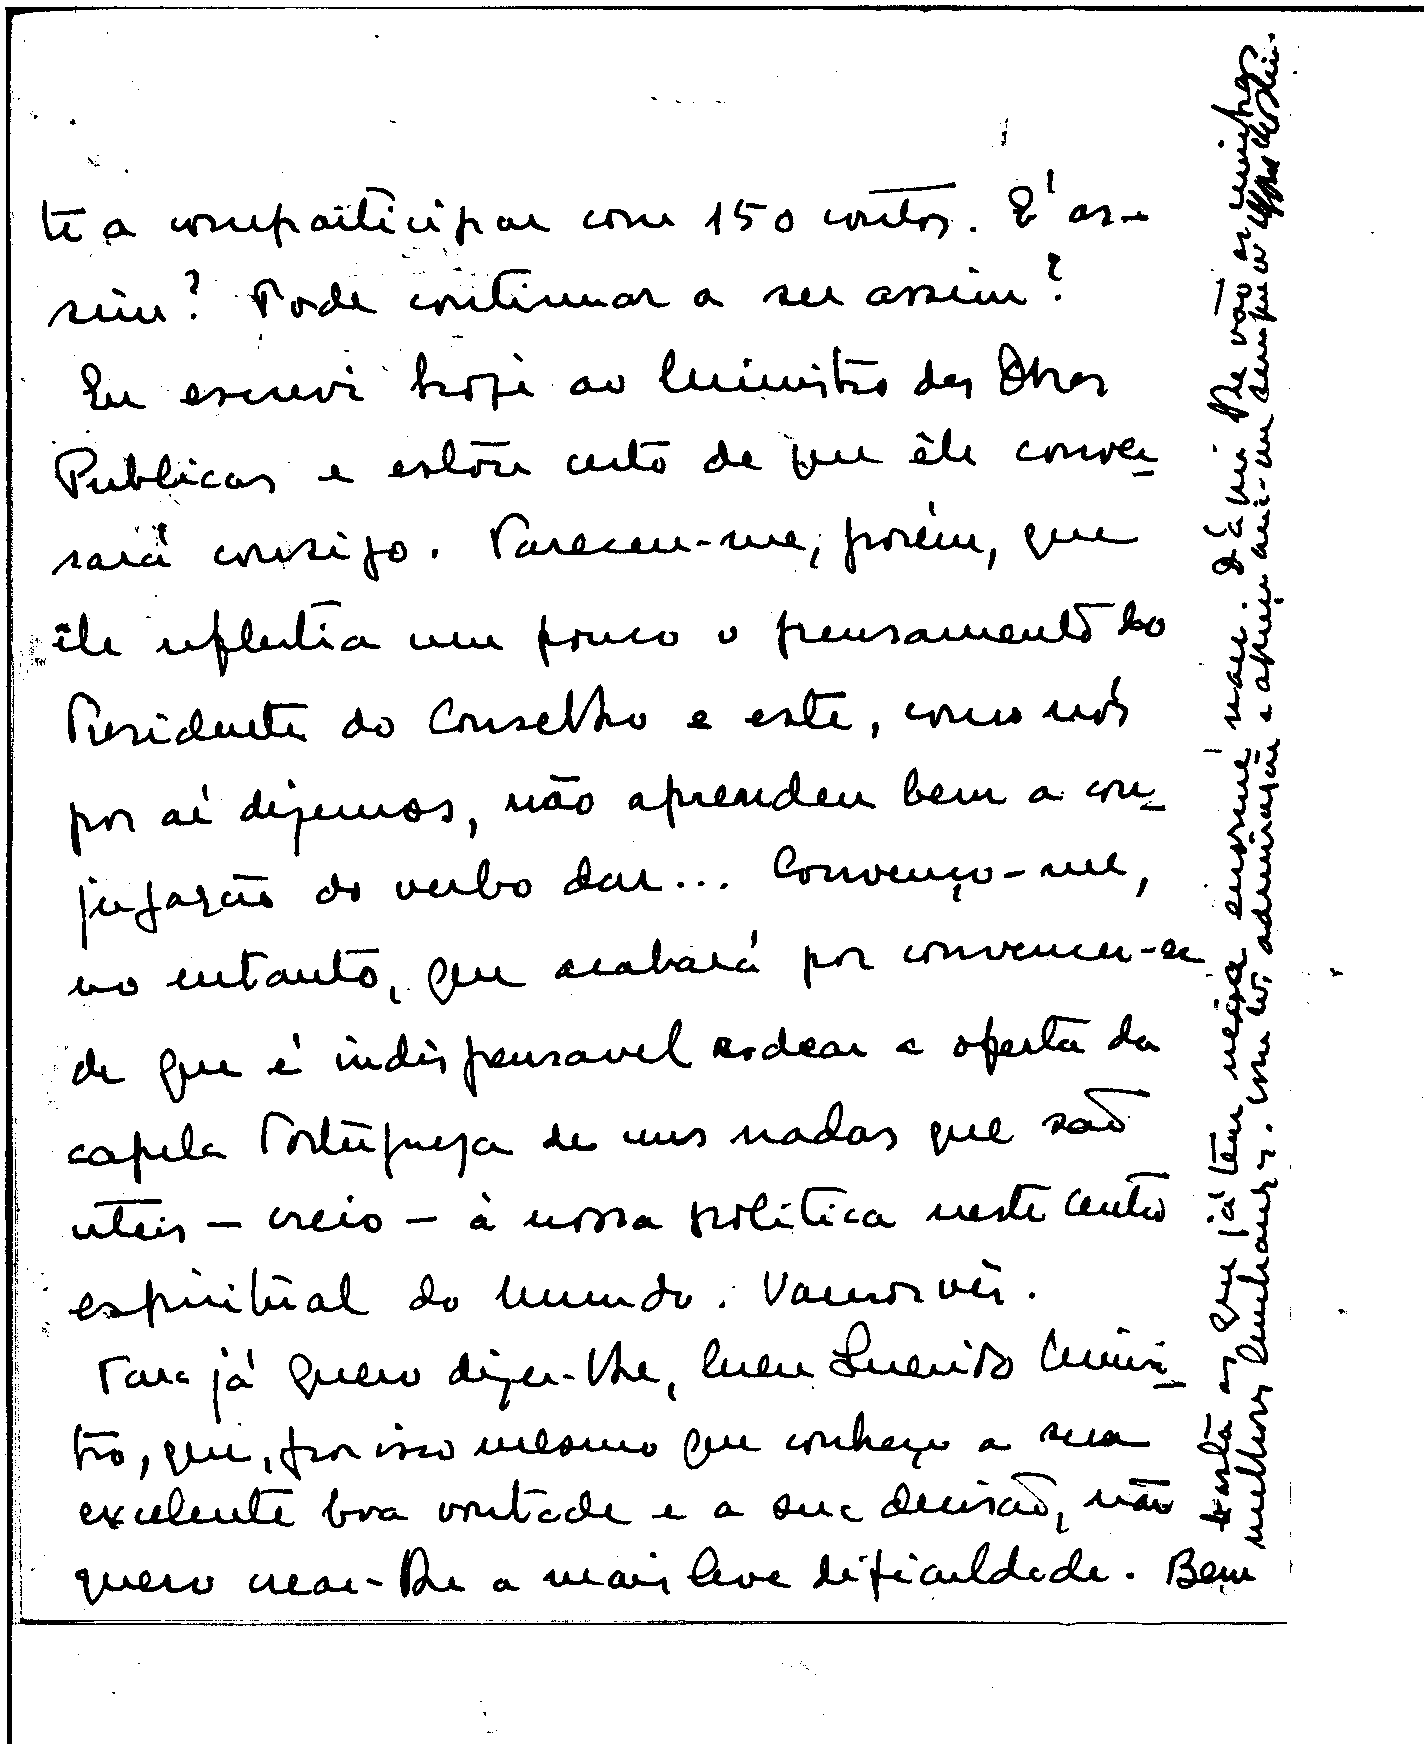 te a comparticipar com 150 contos. E' as-
sim? Pode continuar a ser assim?
Eu escrevi hoje ao Ministro das Obras
Publicas e estou certo de que êle conver-
sará consigo. Pareceu-me, porém, que
êle reflectia um pouco o pensamento do
Presidente do Conselho e este, como nós
por aí dizemos, não aprendeu bem a con-
jugação do verbo dar... Convenço-me,
no entanto, que acabará por convencer-se
de que é indispensavel rodear a oferta da
capela Portuguesa de uns nadas que são
uteis - creio - à nossa politica neste centro
espiritual do mundo. Vamos vêr.
Para já quero dizer-lhe, meu Querido Minis-
tro, que, por isso mesmo que conheço a sua
excelente boa vontade e a sua decisão, não
quero crear-lhe a mais leve dificuldade. Bem
basta as que já tem nessa enorme nau. Daqui lhe vão as minhas
melhores lembranças. Com admiração e apreço